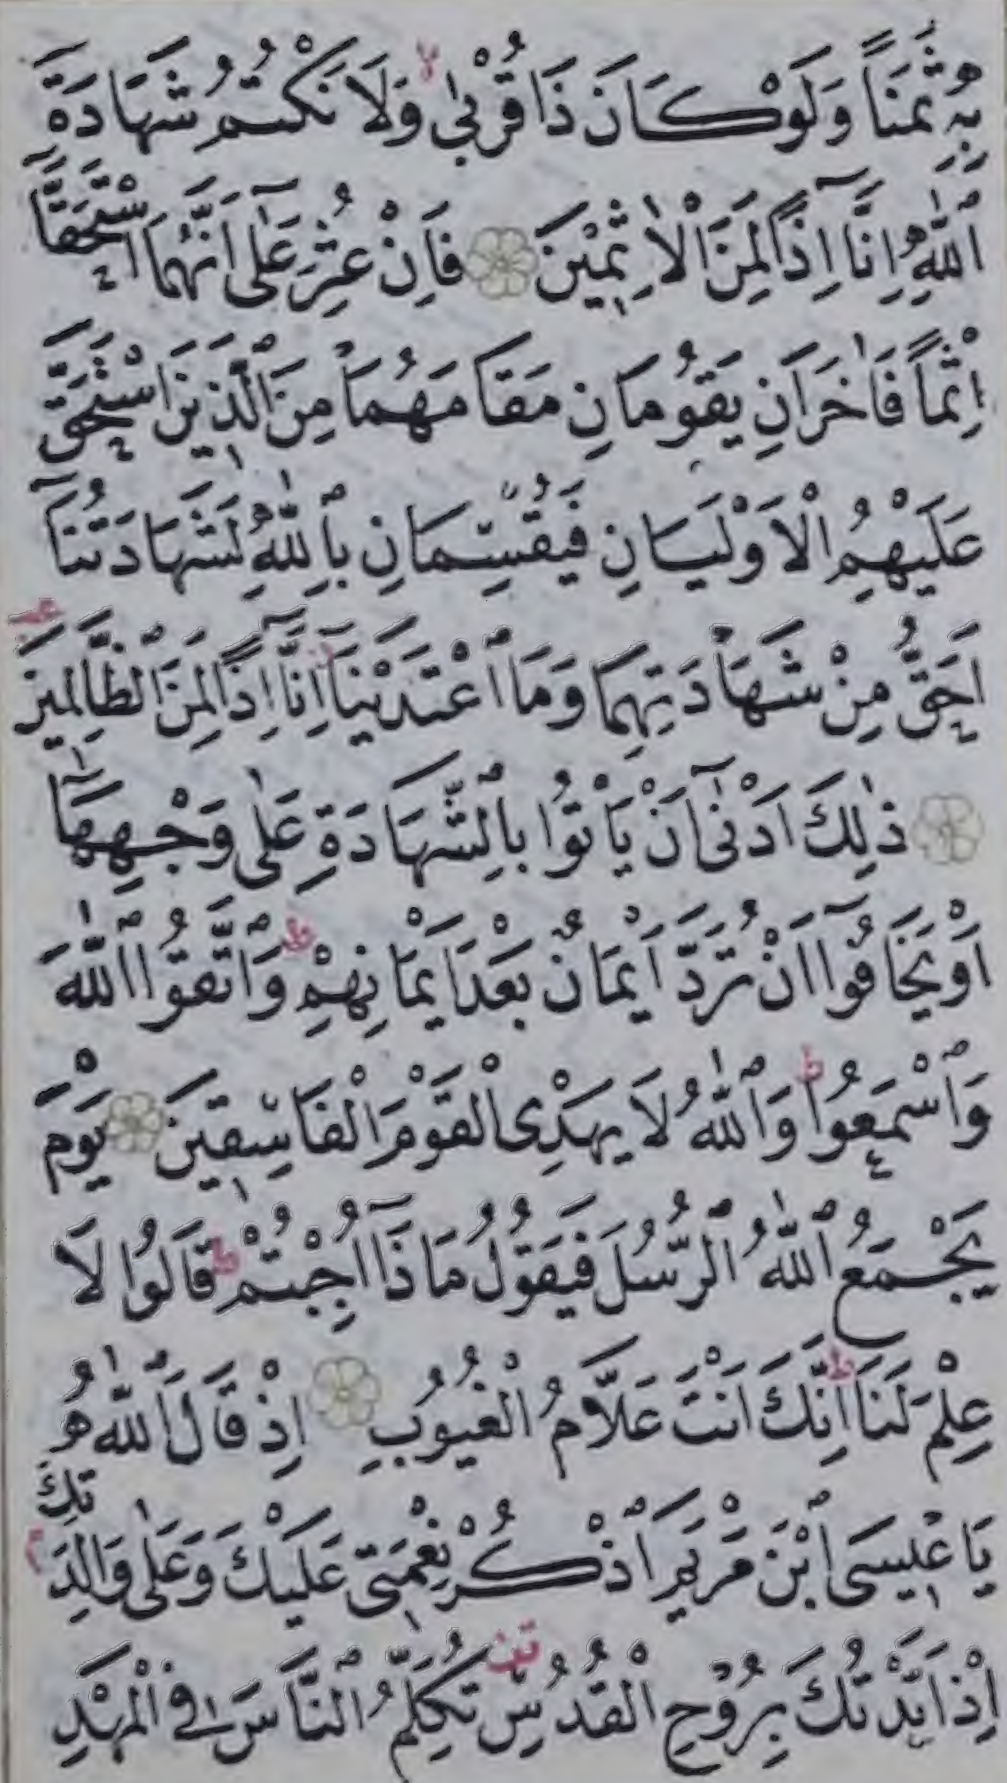 بِهِ ثَمَنًا وَلَوْ كَانَ ذَا قُرْبٰى ۙ وَلَا نَكْتُمُ شَهَادَةَ
اللّٰهِ اِنَّٓا اِذًا لَمِنَ الْاٰثِمٖينَ ۝ فَاِنْ عُثِرَ عَلٰٓى اَنَّهُمَا اسْتَحَقَّٓا
اِثْمًا فَاٰخَرَانِ يَقُومَانِ مَقَامَهُمَا مِنَ الَّذٖينَ اسْتَحَقَّ
عَلَيْهِمُ الْاَوْلَيَانِ فَيُقْسِمَانِ بِاللّٰهِ لَشَهَادَتُنَٓا
اَحَقُّ مِنْ شَهَادَتِهِمَا وَمَا اعْتَدَيْنَٓا اِنَّٓا اِذًا لَمِنَ الظَّالِمٖينَ
۝ ذٰلِكَ اَدْنٰٓى اَنْ يَأْتُوا بِالشَّهَادَةِ عَلٰى وَجْهِهَٓا
اَوْ يَخَافُٓوا اَنْ تُرَدَّ اَيْمَانٌ بَعْدَ اَيْمَانِهِمْ ط وَاتَّقُوا اللّٰهَ
وَاسْمَعُوا ط وَاللّٰهُ لَا يَهْدِى الْقَوْمَ الْفَاسِقٖينَ ۝ يَوْمَ
يَجْمَعُ اللّٰهُ الرُّسُلَ فَيَقُولُ مَاذَٓا اُجِبْتُمْ ط قَالُوا لَا
عِلْمَ لَنَا ط اِنَّكَ اَنْتَ عَلَّامُ الْغُيُوبِ ۝ اِذْ قَالَ اللّٰهُ
يَا عٖيسَى ابْنَ مَرْيَمَ اذْكُرْ نِعْمَتٖى عَلَيْكَ وَعَلٰى وَالِدَتِكَ م
اِذْ اَيَّدْتُكَ بِرُوحِ الْقُدُسِ قف تُكَلِّمُ النَّاسَ فِى الْمَهْدِ